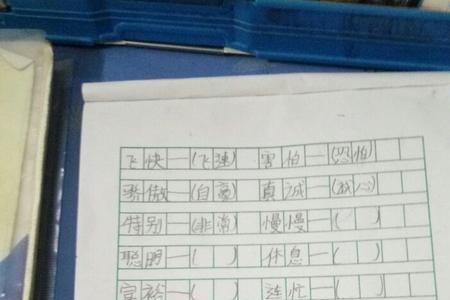 飞快—(飞速) 害怕—(恐怕)
骄傲—(自豪) 真诚—(诚心)
特别—(非常) 慢慢—( )
聪明—( ) 休息—( )
富裕—( ) 连忙—( )